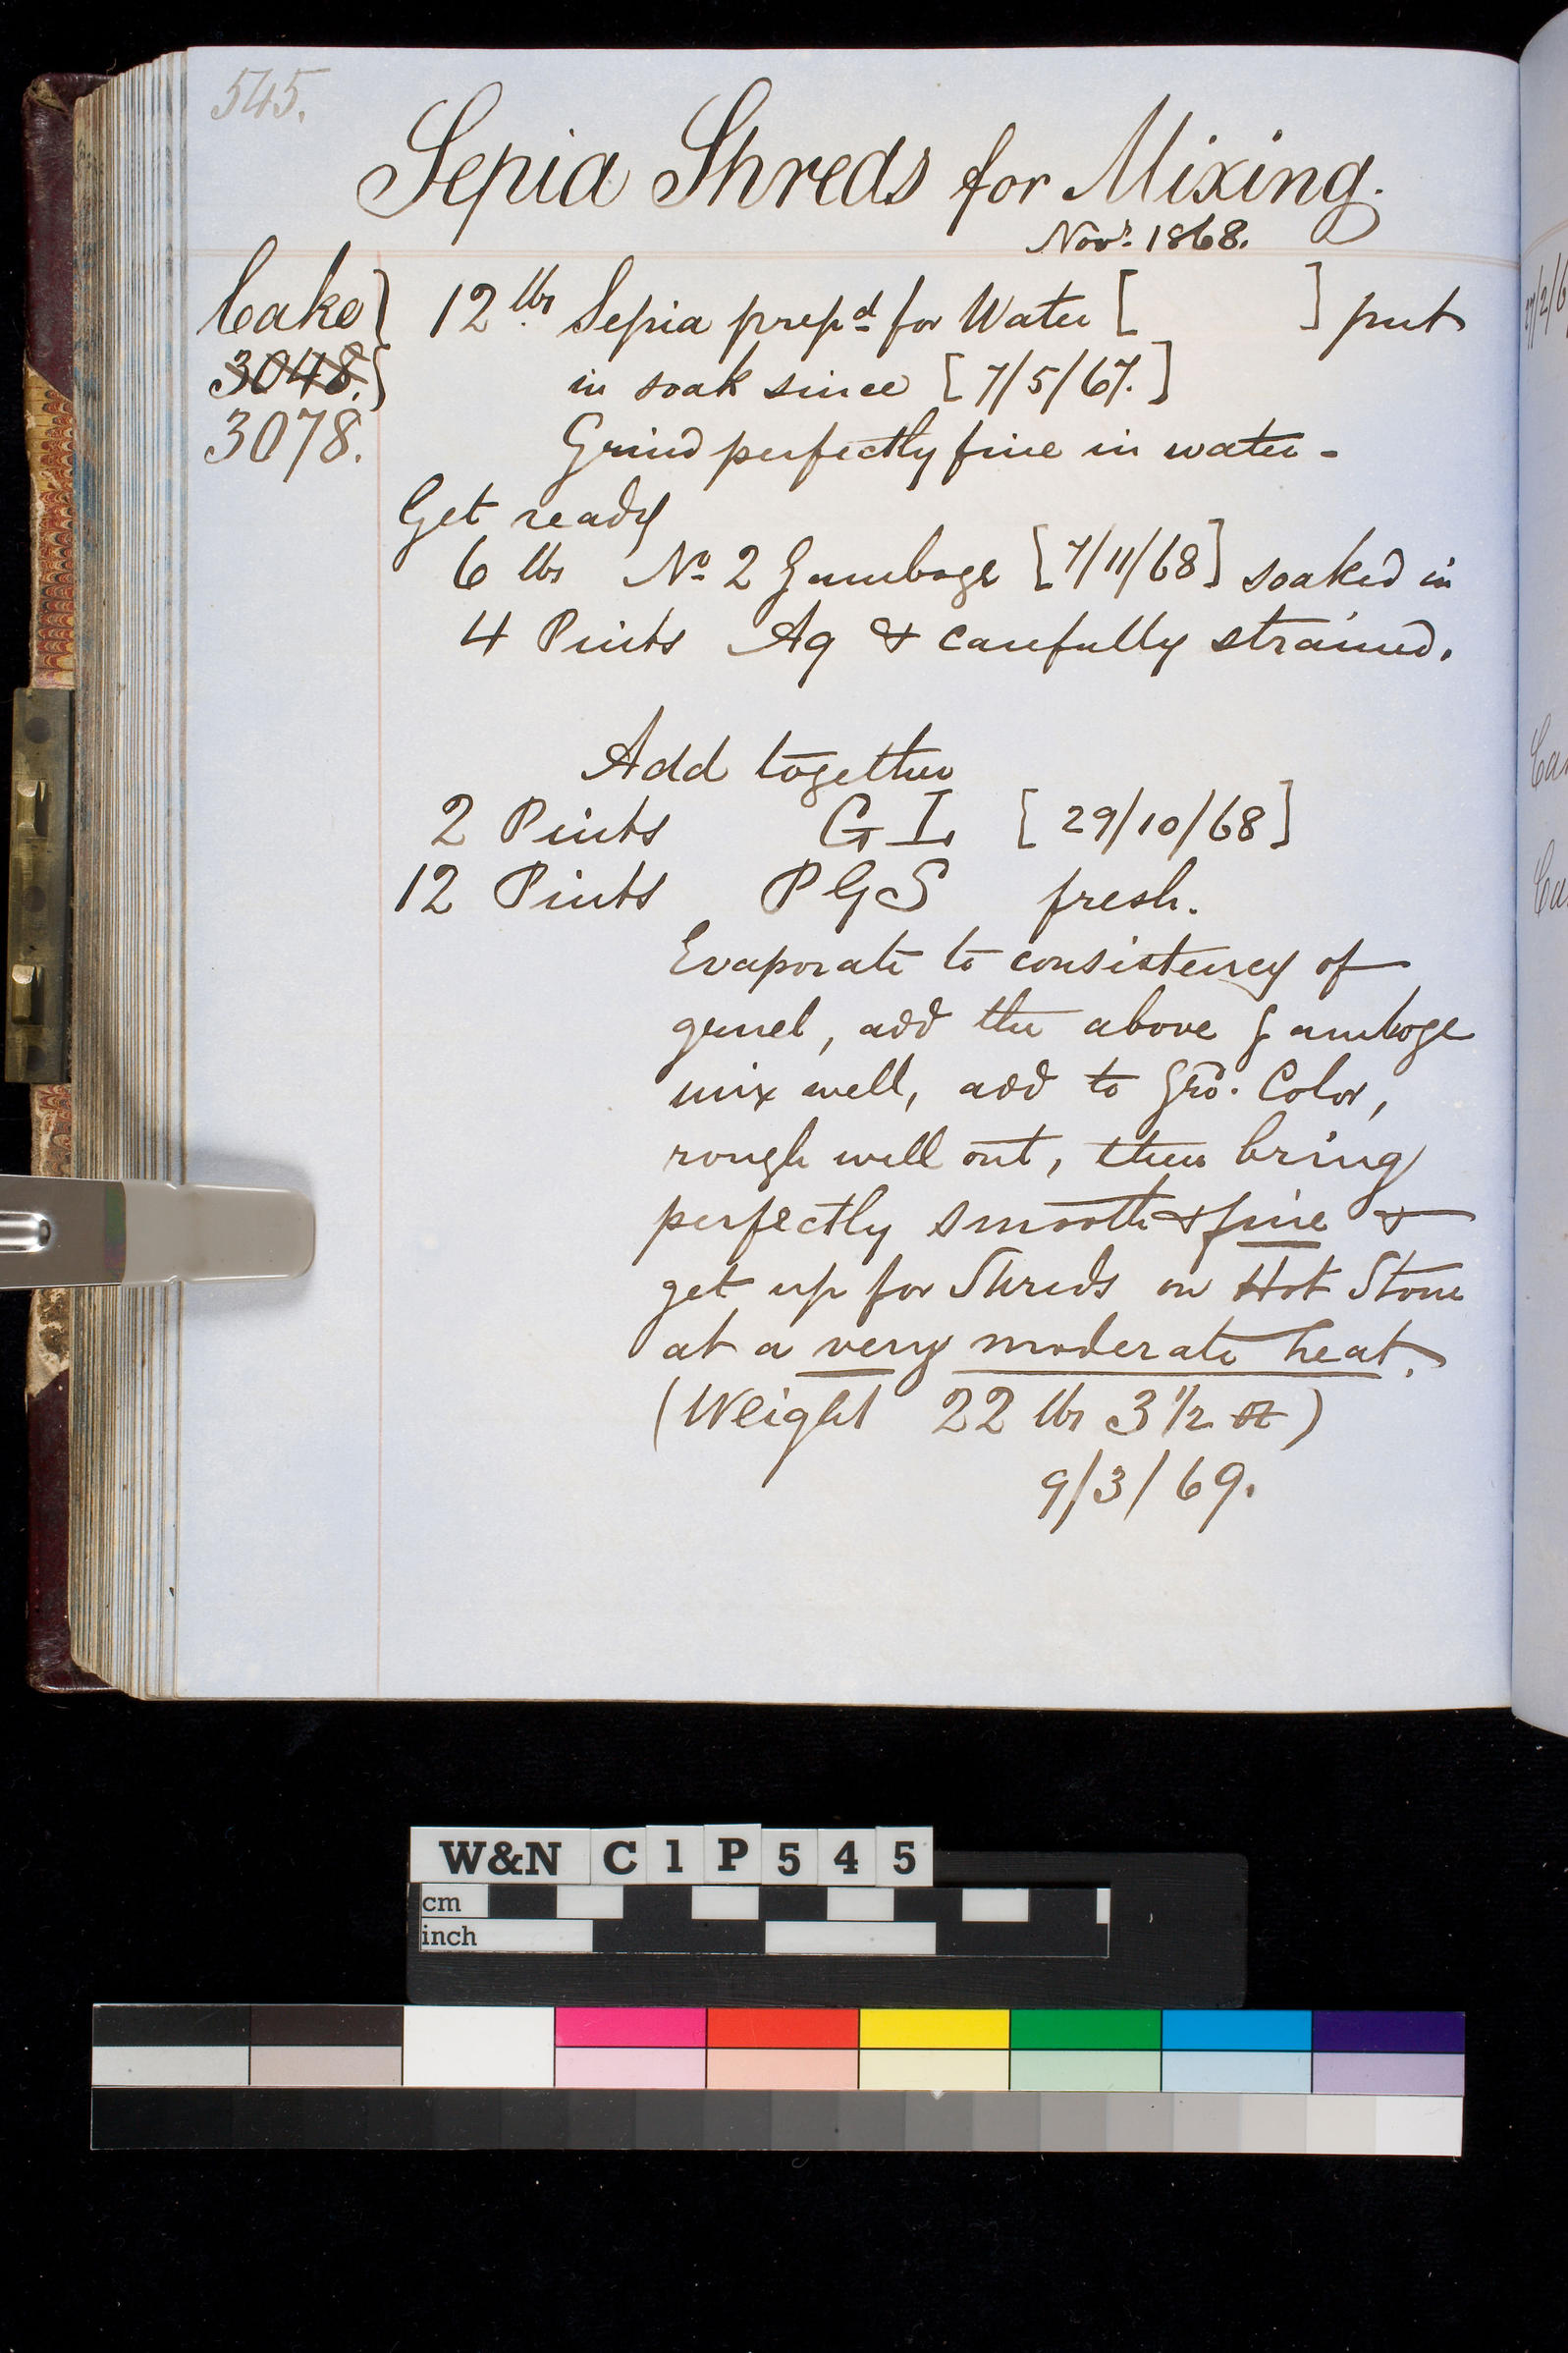 545.
Sepia Shreds for Mixing.
Novr. 1868.
Cake } 12 lbs Sepia prepd for Water [ ] put
3048. } in soak since [7/5/67.]
3078. Grind perfectly fine in water -
Get ready
6 lbs No 2 Gamboge [7/11/68] soaked in
4 Pints Aq & carefully strained.
Add together
2 Pints G I [29/10/68]
12 Pints P G S fresh.
Evaporate to consistency of
gruel, add the above Gamboge
mix well, add to Grd. Color,
rough well out, then bring
perfectly smooth & fine &
get up for Shreds on Hot Stone
at a very moderate heat.
(Weight 22 lbs 3 1/2 oz)
9/3/69.
W&N C1P545
cm
inch